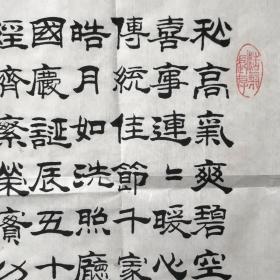 秋高氣爽碧空
喜事連〻暖心
傳統佳節千家
皓月如洗照廳
國慶誕辰五十
經濟繁榮賓